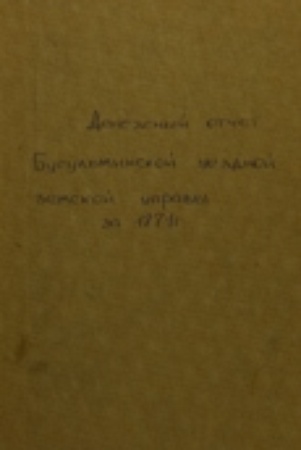 Денежный отчет
Бугульминской уездной
земской управы
за 1871г